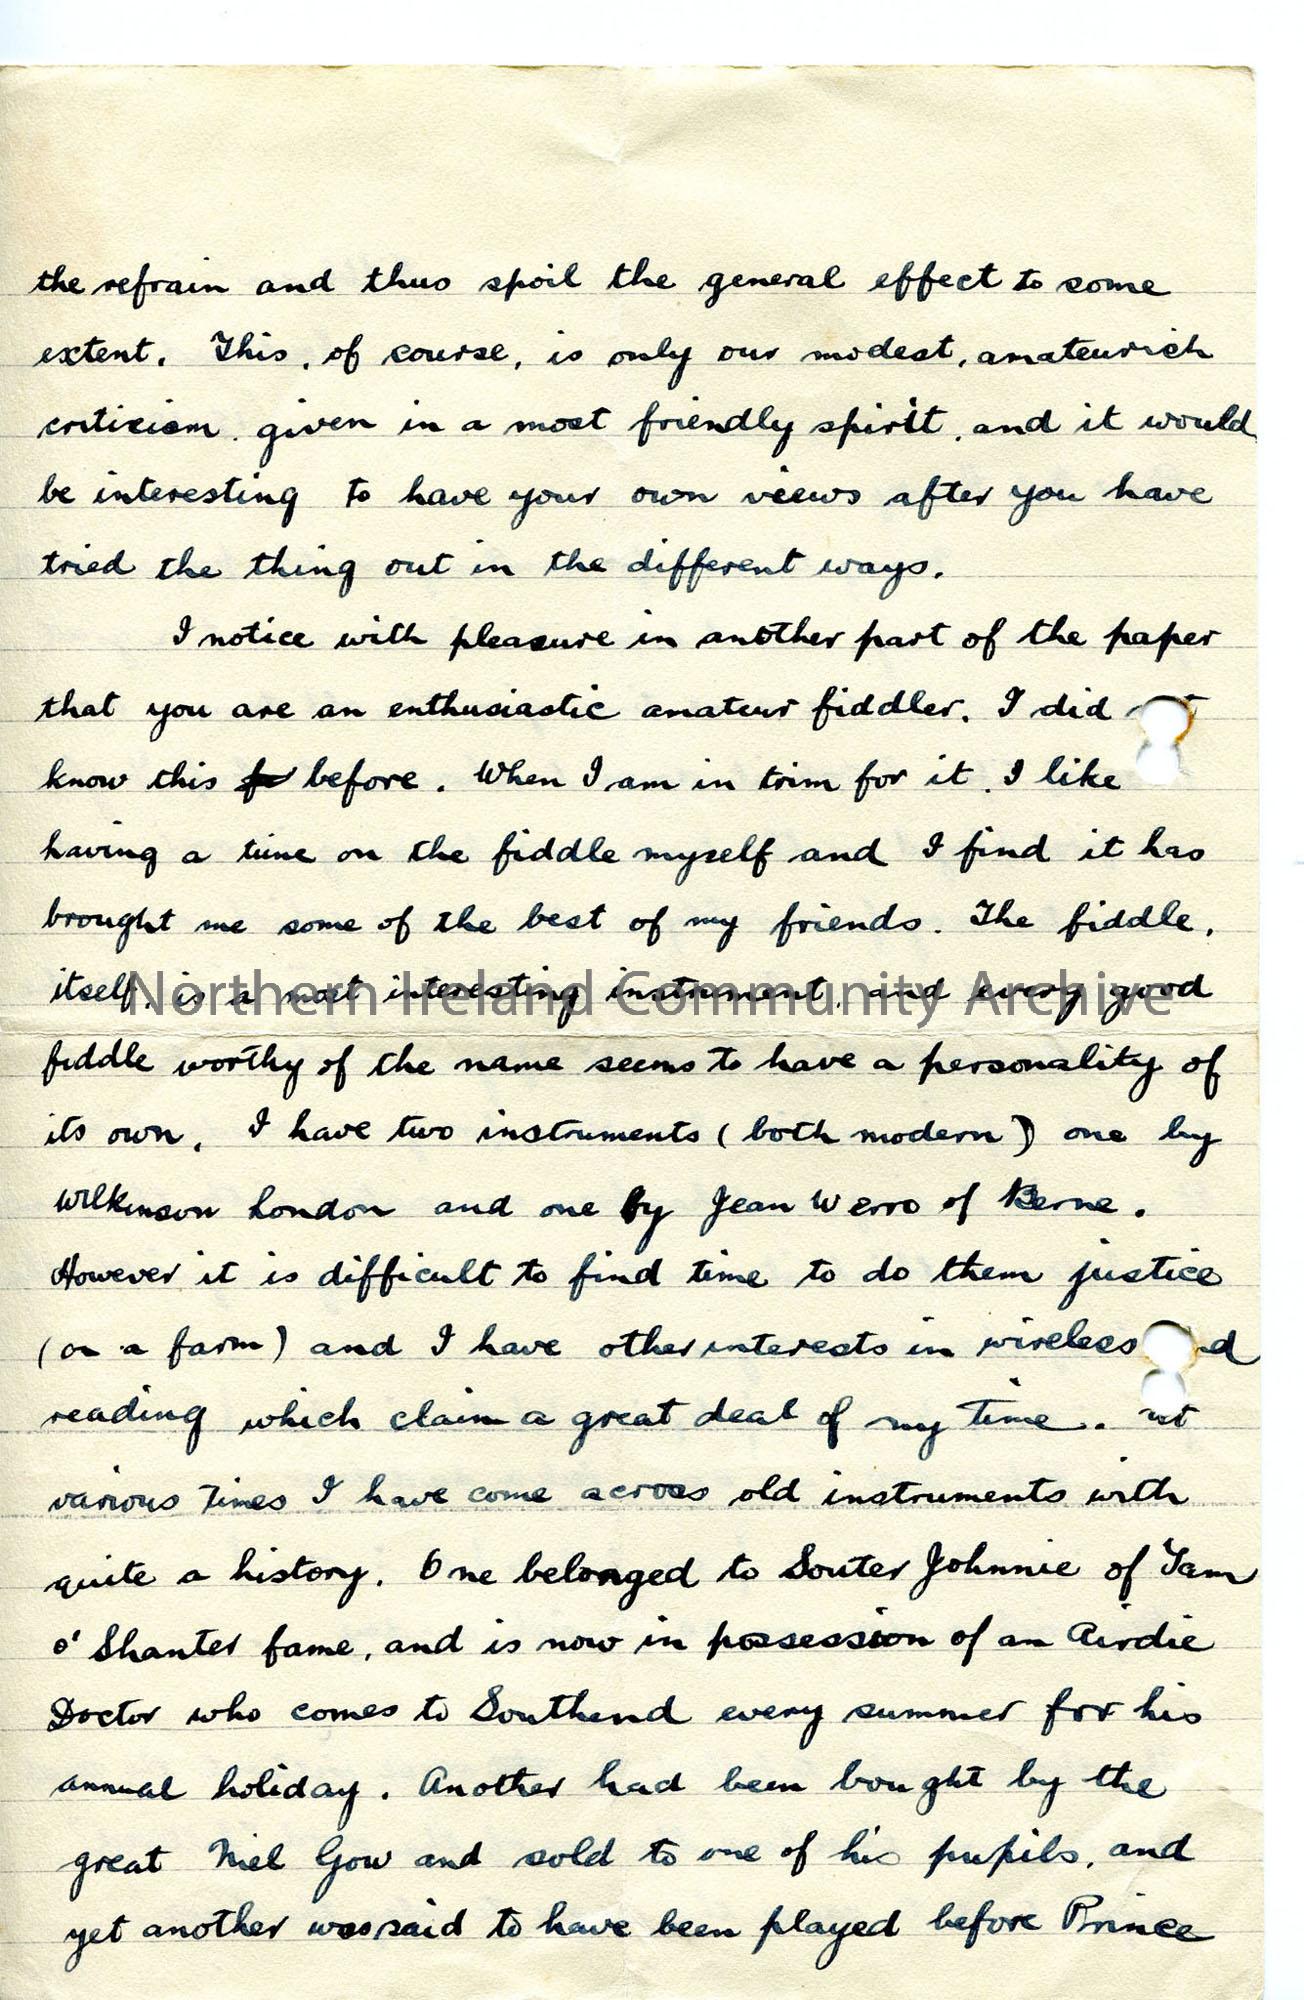 the refrain and thus spoil the general effect to some
extent. This, of course, is only our modest, amateurich
criticism, given in a most friendly spirit, and it would
be interesting to have your own views after you have
tried the thing out in the different ways.
I notice with pleasure in another part of the paper
that you are an enthusiastic amateur fiddler. I did
know this before. When I am in trim for it, I like
having a tune on the fiddle myself and I find it has
brought me some of the best of my friends. The fiddle,
itself, is a most interesting instrument, and every good
Northern Ireland Community Archive
fiddle worthy of the name seems to have a personality of
its own. I have two instruments (both modern) one by
Wilkinson London and one by Jean Werro of Berne.
However it is difficult to find time to do them justice
(on a farm) and I have other interests in wireless
reading which claim a great deal of my time.
various times I have come across old instruments with
quite a history. One belonged to Souter Johnnie of Tam
o' Shanter fame, and is now in possession of an Airdie
Doctor who comes to Southend every summer for his
annual holiday. Another had been bought by the
great Niel Gow and sold to one of his pupils, and
yet another was said to have been played before Prince